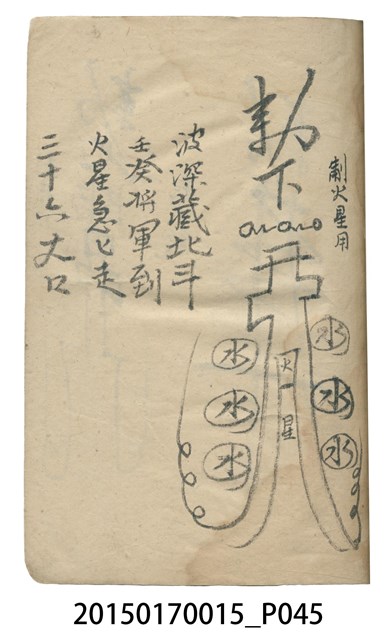 制火星用
勅下
水
水
水
火星
水
水
水
波深藏北斗
壬癸将軍到
火星急匕走
三十六丈口
20150170015_P045